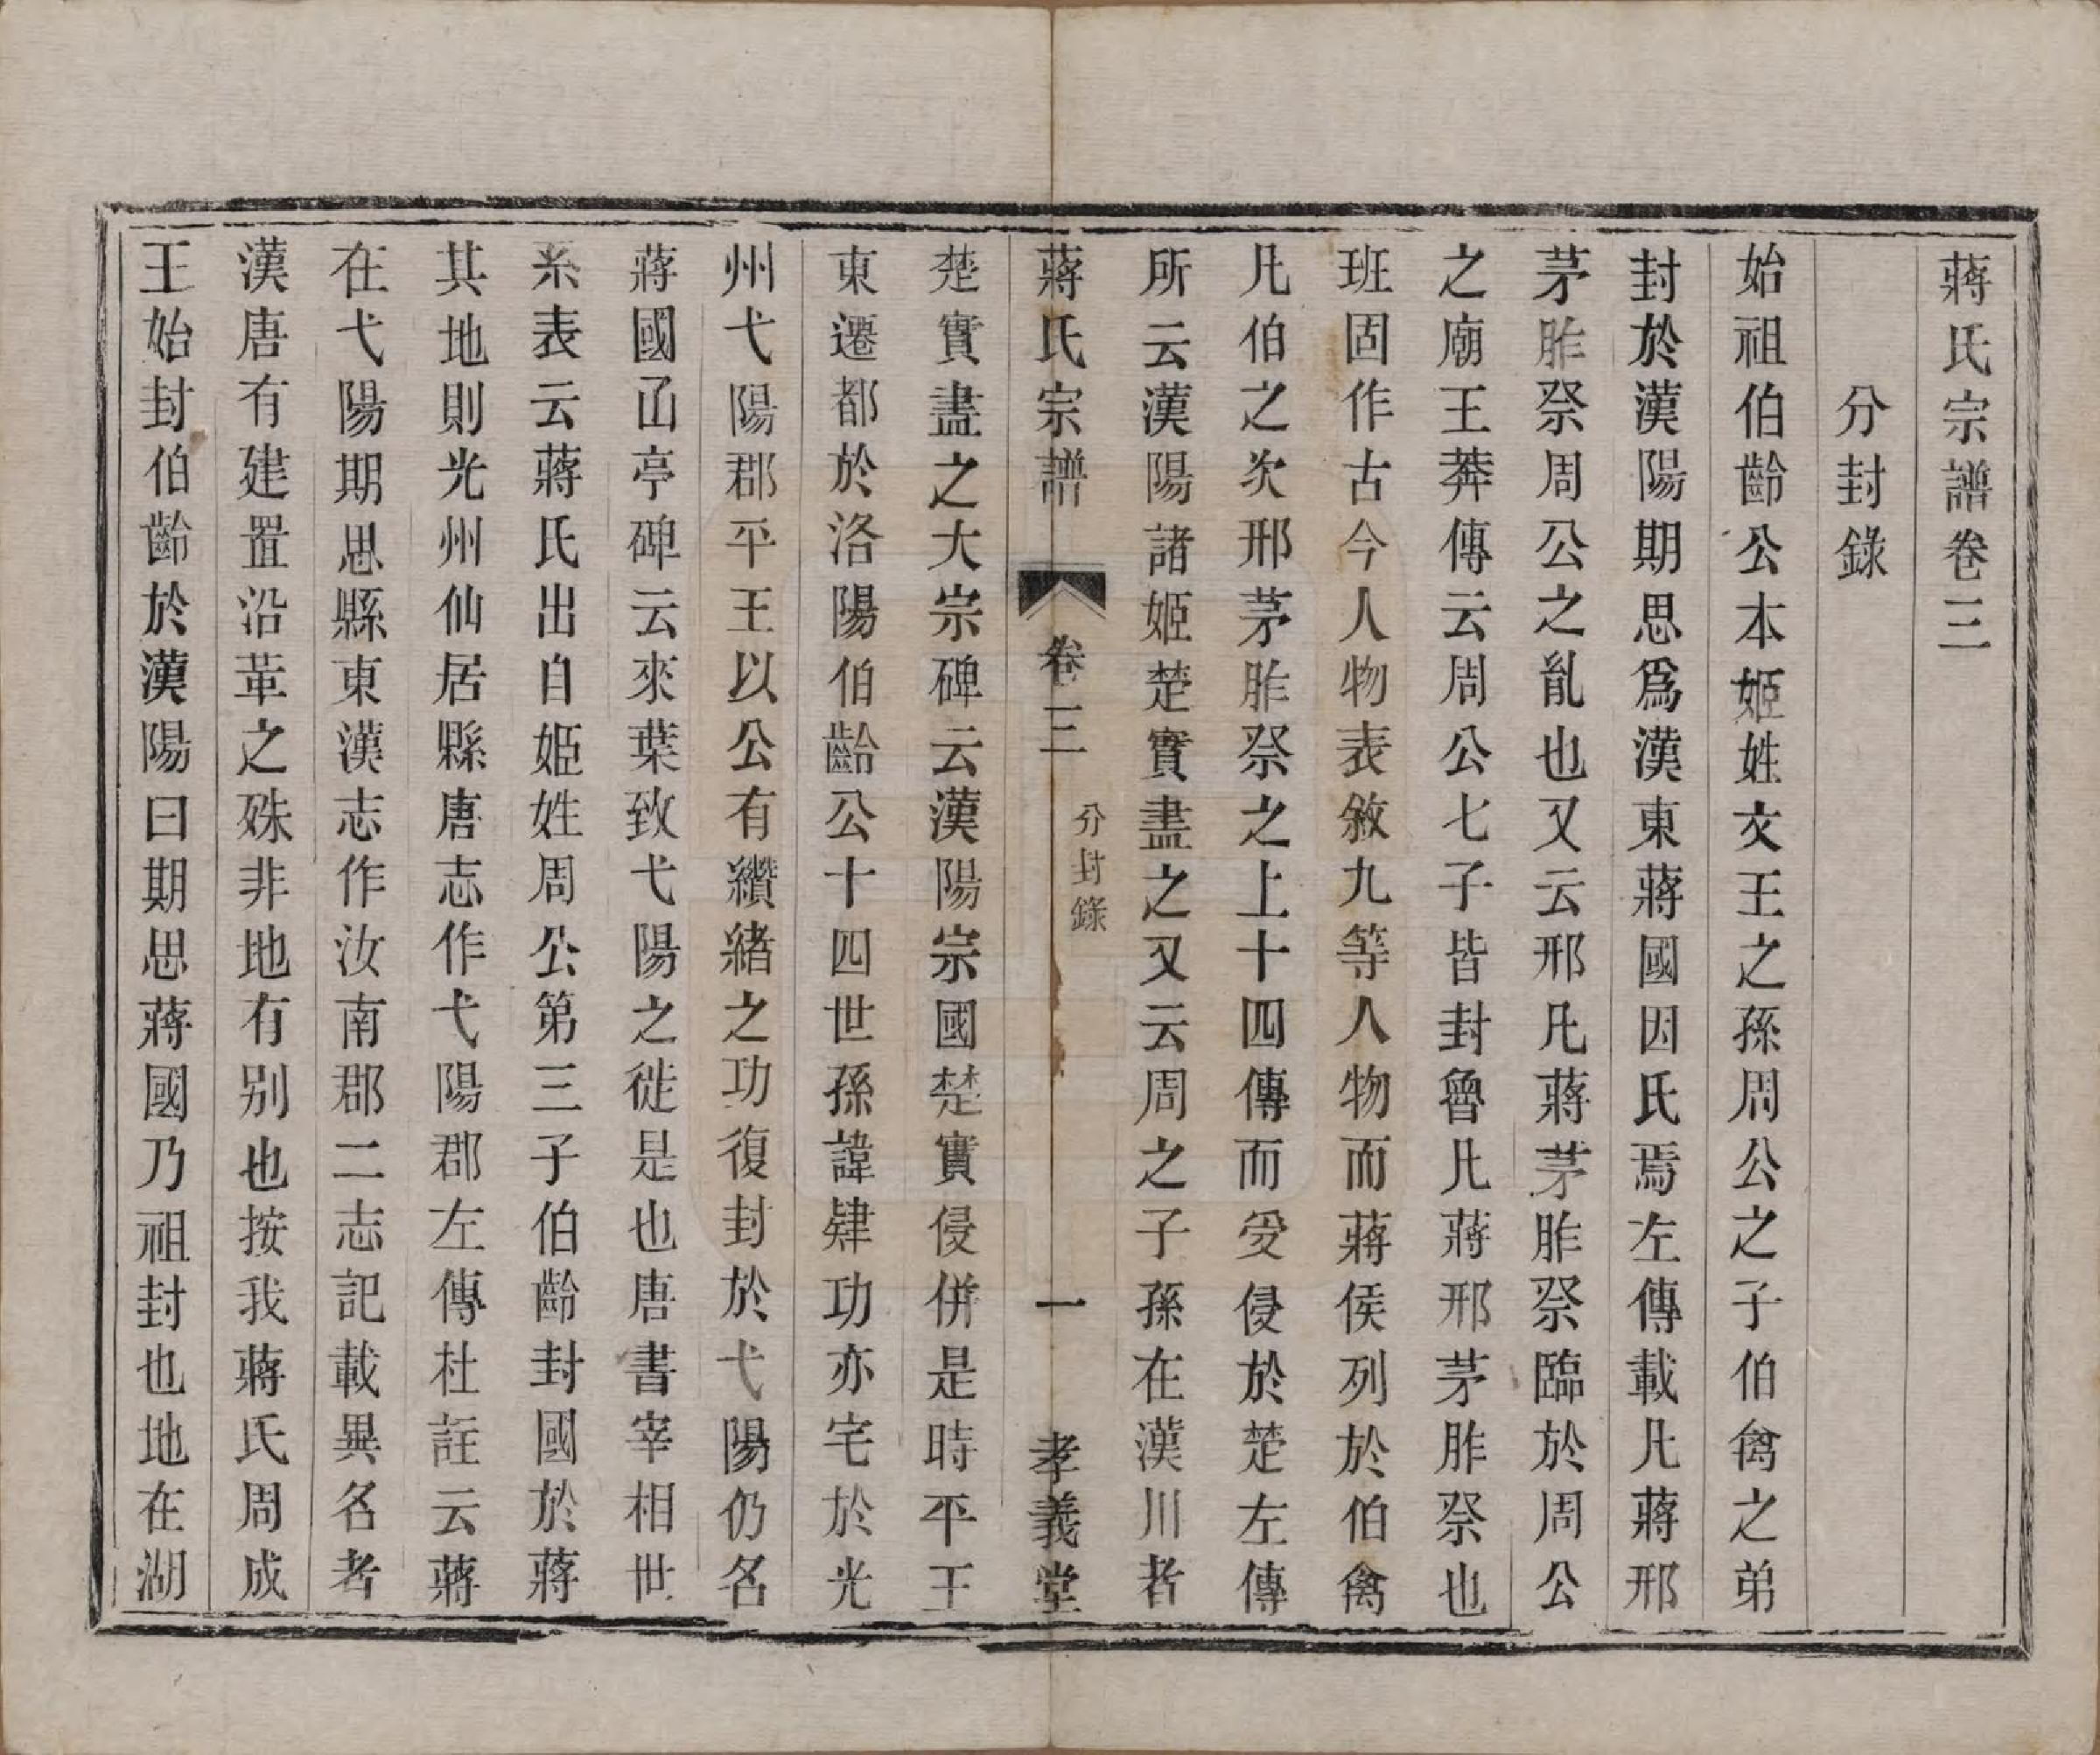 蔣氏宗譜卷三
分封錄
始祖伯齡公本姬姓文王之孫周公之子伯禽之弟
封於漢陽期思爲漢東蔣國因氏焉左傳載凡蔣邢
茅胙祭周公之胤也又云邢凡蔣茅胙祭臨於周公
之廟王莽傳云周公七子皆封魯凡蔣邢茅胙祭也
班固作古今人物表敘九等人物而蔣侯列於伯禽
凡伯之次邢茅胙祭之上十四傳而受侵於楚左傳
所云漢陽諸姬楚實盡之又云周之子孫在漢川者
蔣氏宗譜 卷三 分封錄 一 孝義堂
楚實盡之大宗碑云漢陽宗國楚實侵併是時平王
東遷都於洛陽伯齡公十四世孫諱肄功亦宅於光
州弋陽郡平王以公有纘緒之功復封於弋陽仍名
蔣國函亭碑云來葉致弋陽之徙是也唐書宰相世
系表云蔣氏出自姬姓周公第三子伯齡封國於蔣
其地則光州仙居縣唐志作弋陽郡左傳杜註云蔣
在弋陽期思縣東漢志作汝南郡二志記載異名者
漢唐有建置沿革之殊非地有别也按我蔣氏周成
王始封伯齡於漢陽曰期思蔣國乃祖封也地在湖